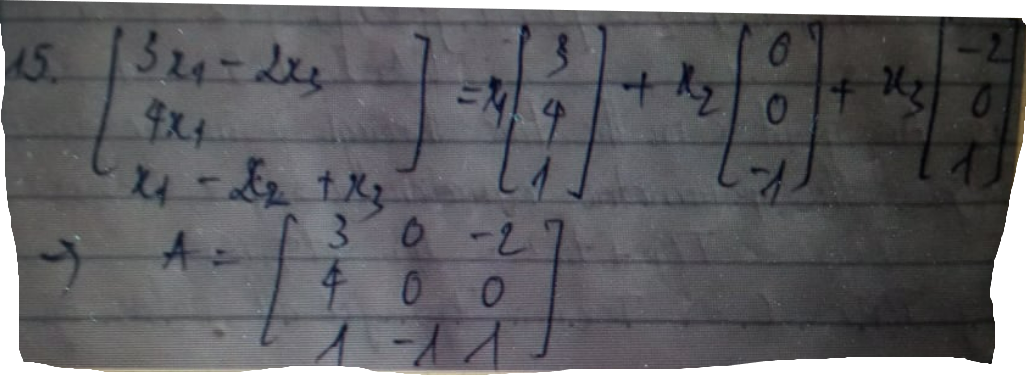 15. [3x₁ - 2x₃; 4x₁; x₁ - x₂ + x₃] = x₁ [3; 4; 1] + x₂ [0; 0; -1] + x₃ [-2; 0; 1]
→ A = [3 0 -2; 4 0 0; 1 -1 1]